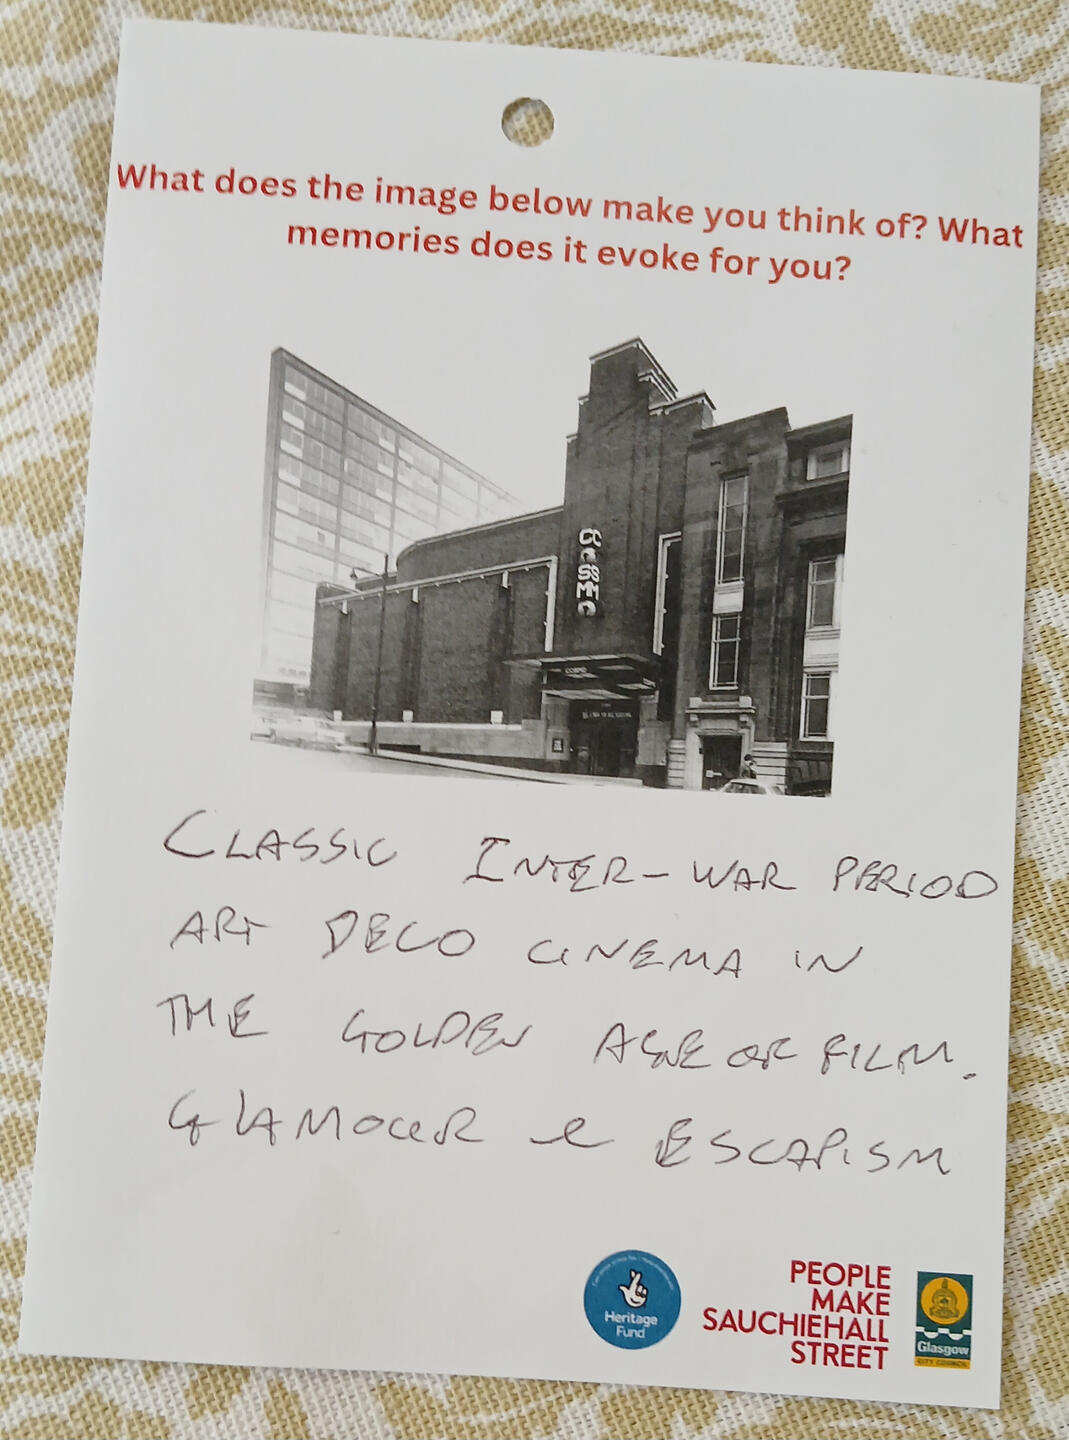 What does the image below make you think of? What
memories does it evoke for you?
COSMO
COSMO
CLASSIC INTER-WAR PERIOD
ART DECO CINEMA IN
THE GOLDEN AGE OF FILM.
GLAMOUR & ESCAPISM
Heritage
Fund
PEOPLE
MAKE
SAUCHIEHALL
STREET
Glasgow
CITY COUNCIL